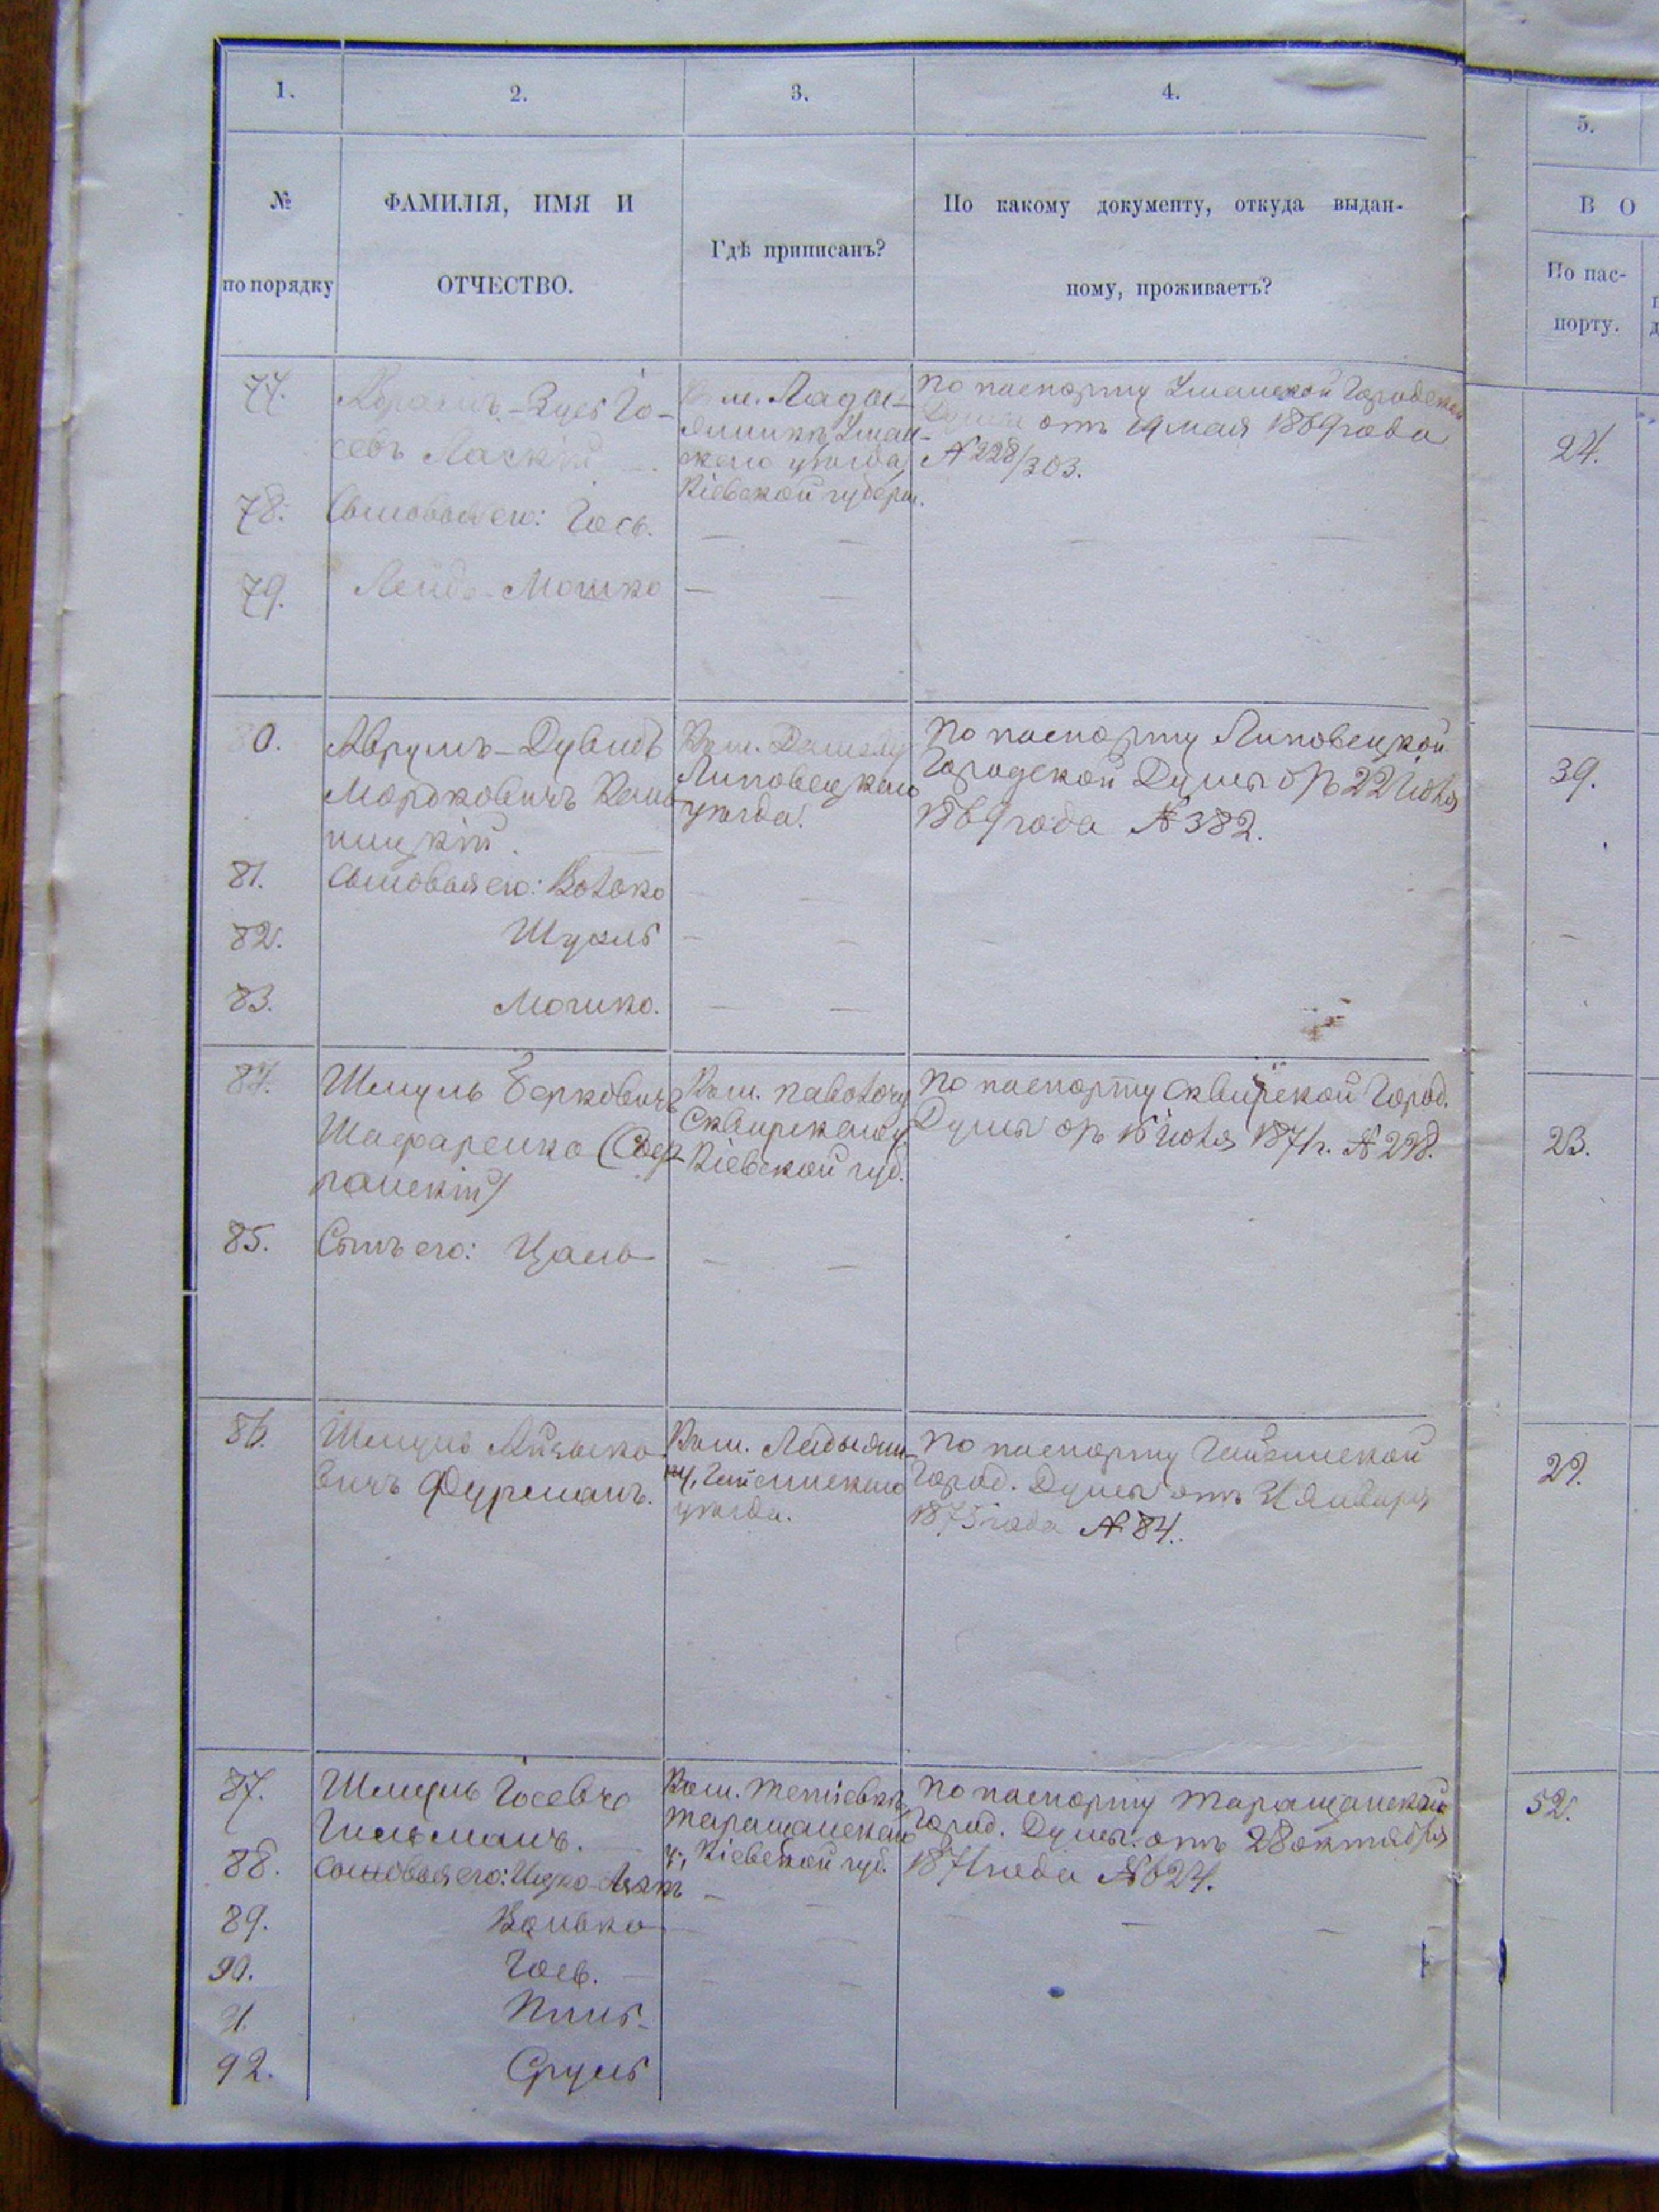 1.
2.
3.
4.
5.
№
по порядку
ФАМИЛІЯ, ИМЯ И
ОТЧЕСТВО.
Гдѣ приписанъ?
По какому документу, откуда выдан-
ному, проживаетъ?
В О
По пас-
порту.
77.
Іо-
севъ Ласкій
м. Лады-
Уман-
скаго уѣзда
Кіевской губерн.
По паспорту Уманской Городской
Думы отъ 19 мая 1869 года
№ 228/303.
24.
78. Сыновья его: Іось.
79. Лейб-Мошко
80.
Аврумъ-Дувидъ
Мордковичъ
ницкій.
Къ м. Дашеву
Липовецкаго
уѣзда.
По паспорту Липовецкой
Городской Думы отъ 22 Іюля
1869 года № 382.
39.
81. Сыновья его:
82. Шукль
83. Мошко.
84.
Шмуль Берковичъ
Шафаренко
ганскій)
Къ м. Паволочу
Сквирскаго у.
Кіевской губ.
По паспорту Сквирской Город.
Думы отъ 15 Іюля 1871 г. № 298.
23.
85. Сынъ его: Цаль
86.
Шмуль Айзыко-
вичъ Фурманъ.
Къ м. Ладыжин-
ку, Гайсинскаго
уѣзда.
По паспорту Гайсинской
Город. Думы отъ 31 Января
1875 года № 84.
29.
87.
Шмуль Іосевъ
Гильманъ.
Къ м. Тетіевкѣ,
Таращанскаго
у., Кіевской губ.
По паспорту Таращанской
Город. Думы отъ 28 октября
1871 года № 624.
52.
88. Сыновья его: Ицко-
89. Волько
90. Іось.
91. Пиня
92. Сруль